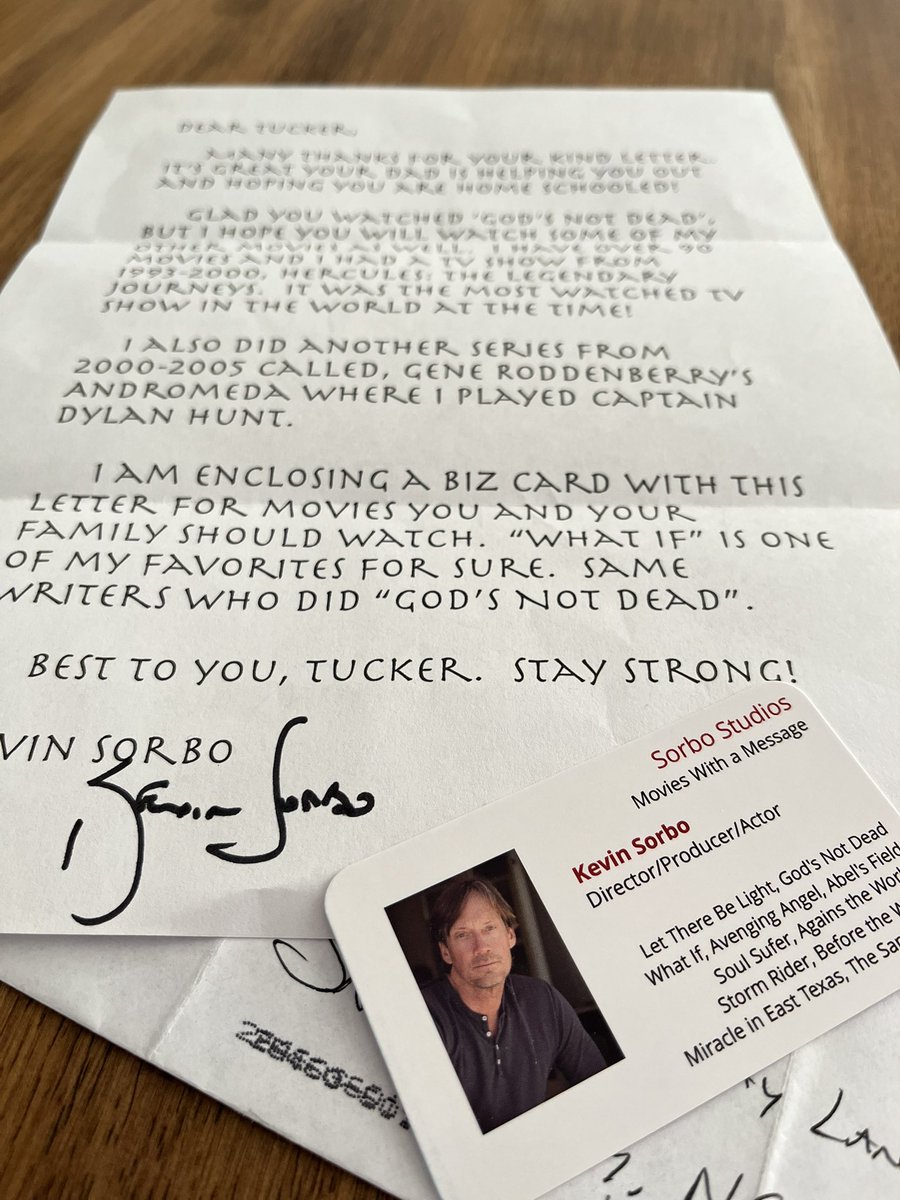 DEAR TUCKER,
MANY THANKS FOR YOUR KIND LETTER.
IT'S GREAT YOUR DAD IS HELPING YOU OUT
AND HOPING YOU ARE HOME SCHOOLED!
GLAD YOU WATCHED 'GOD'S NOT DEAD',
BUT I HOPE YOU WILL WATCH SOME OF MY
OTHER MOVIES AS WELL. I HAVE OVER 90
MOVIES AND I HAD A TV SHOW FROM
1993-2000, HERCULES: THE LEGENDARY
JOURNEYS. IT WAS THE MOST WATCHED TV
SHOW IN THE WORLD AT THE TIME!
I ALSO DID ANOTHER SERIES FROM
2000-2005 CALLED, GENE RODDENBERRY'S
ANDROMEDA WHERE I PLAYED CAPTAIN
DYLAN HUNT.
I AM ENCLOSING A BIZ CARD WITH THIS
LETTER FOR MOVIES YOU AND YOUR
FAMILY SHOULD WATCH. "WHAT IF" IS ONE
OF MY FAVORITES FOR SURE. SAME
WRITERS WHO DID "GOD'S NOT DEAD".
BEST TO YOU, TUCKER. STAY STRONG!
VIN SORBO
Kevin Sorbo
Sorbo Studios
Movies With a Message
Kevin Sorbo
Director/Producer/Actor
Let There Be Light, God's Not Dead
What If, Avenging Angel, Abel's Field
Soul Sufer, Agains the Worl
Storm Rider, Before the W
Miracle in East Texas, The San